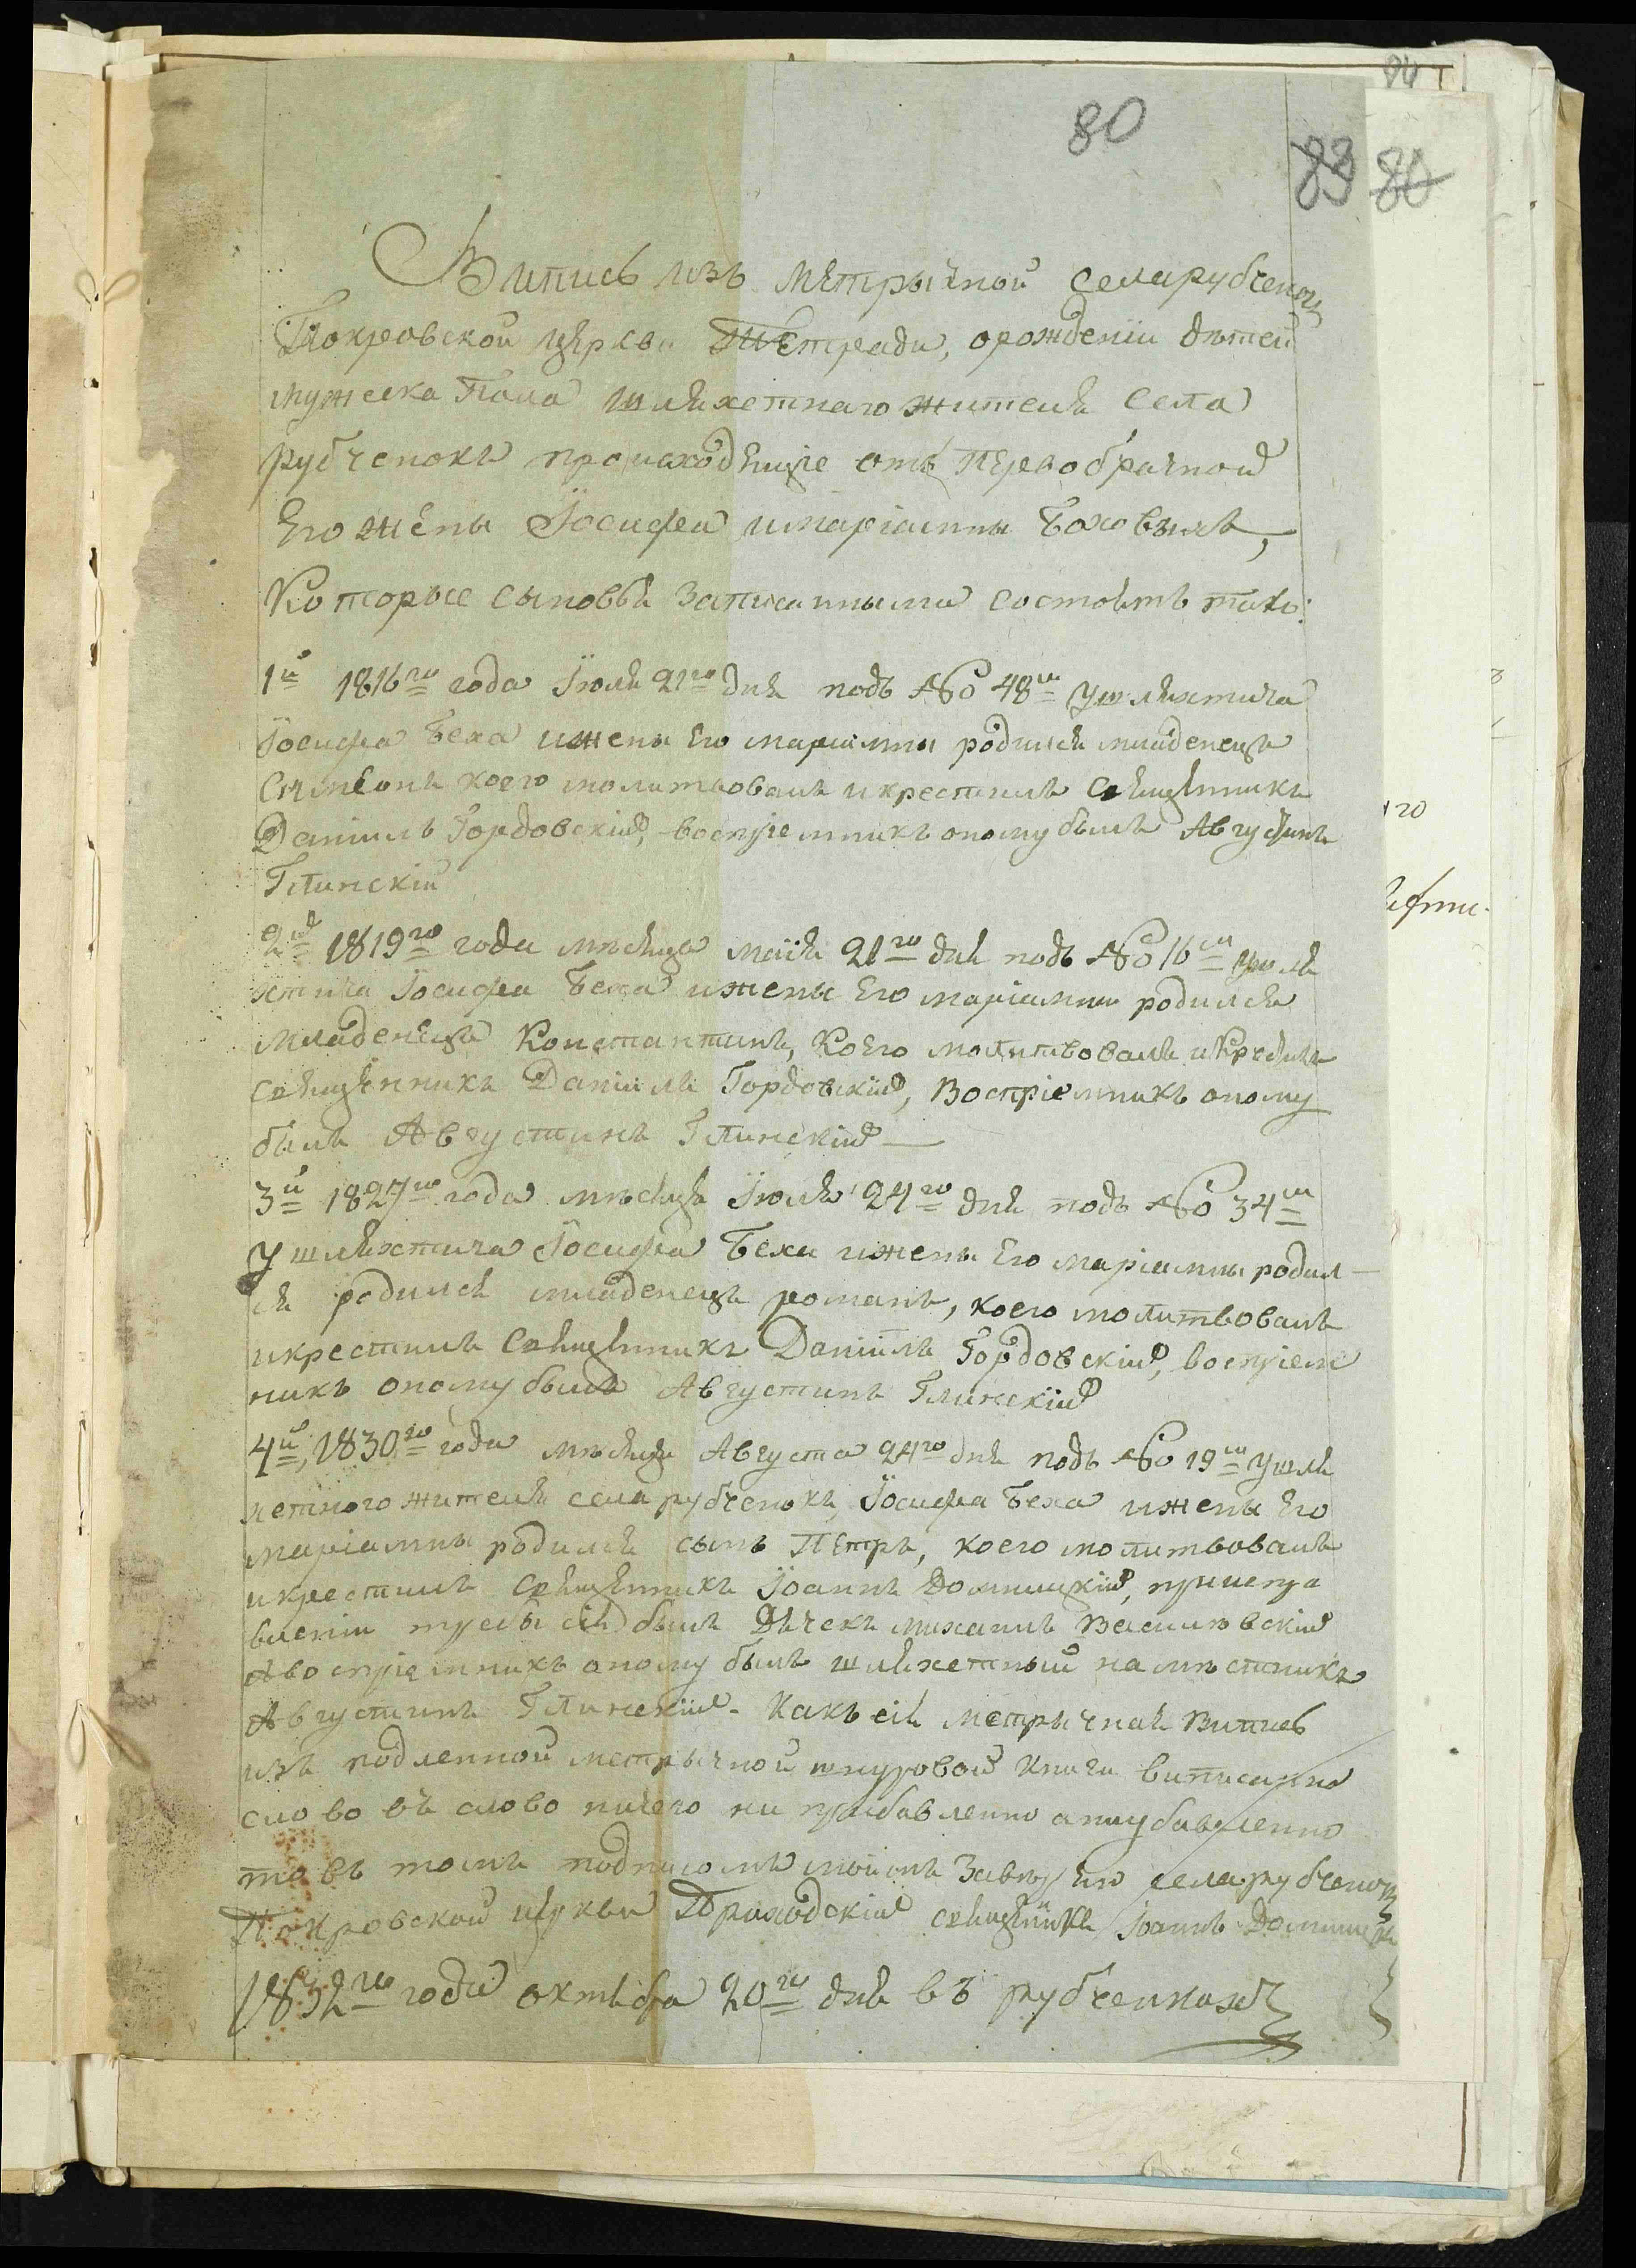 84
80
83 80
Випись изъ Метрычной Села рубченокъ
Покровской церкви Тетради, о рождении дѣтей
мужеска Пола шляхетнаго жителя Села
рубченокъ происходящіе отъ Первобрачной
Его жены Іосифа и маріанны Беховыхъ,
Которые сыновья Записанными состоятъ тако:
1й 1816го года Іюля 21го дня подъ No 48м у шляхтича
Іосифа Беха и жены Его маріанны родился младенецъ
Симеонъ коего молитвовалъ и крестилъ Священникъ
Даніилъ Гордовскій, воспріемникъ оному былъ Августинъ
Глинскій
2й 1819го года мѣсяца маія 21го дня подъ No 16м у шля
хтича Іосифа Беха и жены Его маріанны родился
младенецъ Константинъ, Коего молитвовалъ и Крестилъ
священникъ Даніилъ Гордовскій, Воспріемникъ оному
былъ Августинъ Глинскій
3й 1827го года мѣсяца Іюля 24го дня подъ No 34м
у шляхтича Іосифа Беха и жены Его маріанны родил
ся родился младенецъ романъ, коего молитвовалъ
и крестилъ Священникъ Даніилъ Гордовскій, воспріем
никъ оному былъ Августинъ Глинскій
4й, 1830го года мѣсяца Августа 24го дня подъ No 19м у шля
хетного жителя села рубченокъ, Іосифа Беха и жены Его
маріанны родился сынъ Петръ, коего молитвовалъ
и крестилъ Священникъ Іоаннъ Домницкій, при испра
вленіи требы сей былъ Дѣчекъ михаилъ Василѣвскій
А воспріемникъ оному былъ шляхетный намѣстникъ
Августинъ Глинскій. Какъ сія метрычная Випись
изъ подленной метрычной шнуровой Книги виписанно
слово въ слово ничего ни прибавленно а ни убавленно
то въ томъ подписомъ моимъ Завѣряю села рубченокъ
Покровской церкви Приходскій священникъ Іоаннъ Домницкій
1832го года октября 20го дня въ рубченкахъ
го